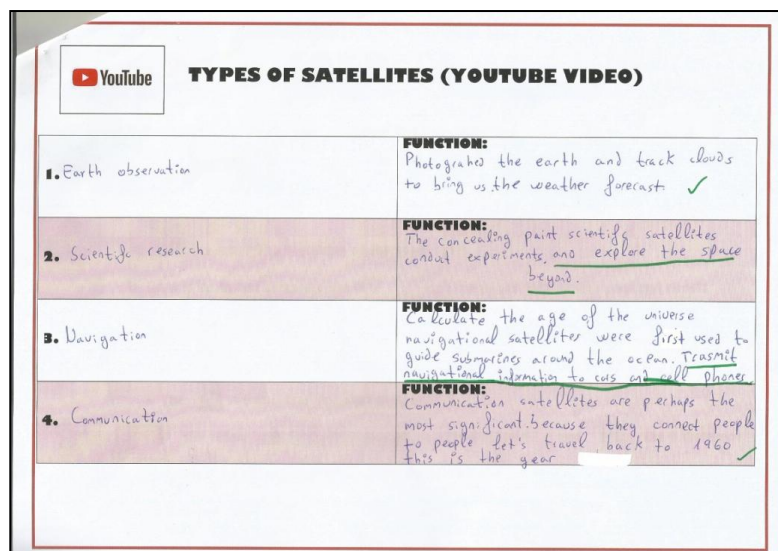 YouTube
TYPES OF SATELLITES (YOUTUBE VIDEO)
1. Earth observation
FUNCTION:
Photograhed the earth and track clouds
to bring us the weather forecast
2. Scientific research
FUNCTION:
The concealing paint scientific satellites
conduct experiments. and explore the space
beyond.
3. Navigation
FUNCTION:
Calculate the age of the universe
navigational satellites were first used to
guide submarines around the ocean. Trasmit
navigational information to cars and cell phones
4. Communication
FUNCTION:
Communication satellites are perhaps the
most significant. because they connect people
to people let's travel back to 1960
this is the year